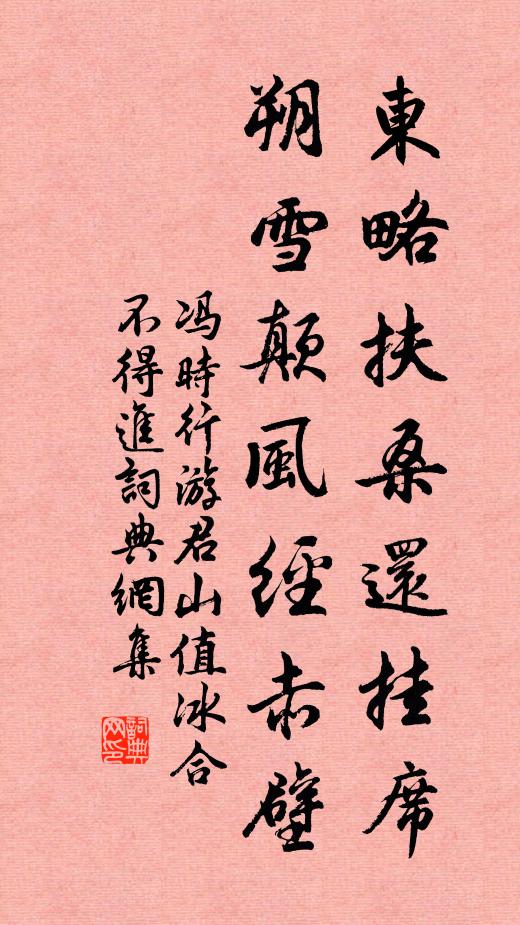 東略扶桑還挂席
朔雪顛風經赤壁
冯時行游君山值冰合
不得進詞典網集
詞典
网印